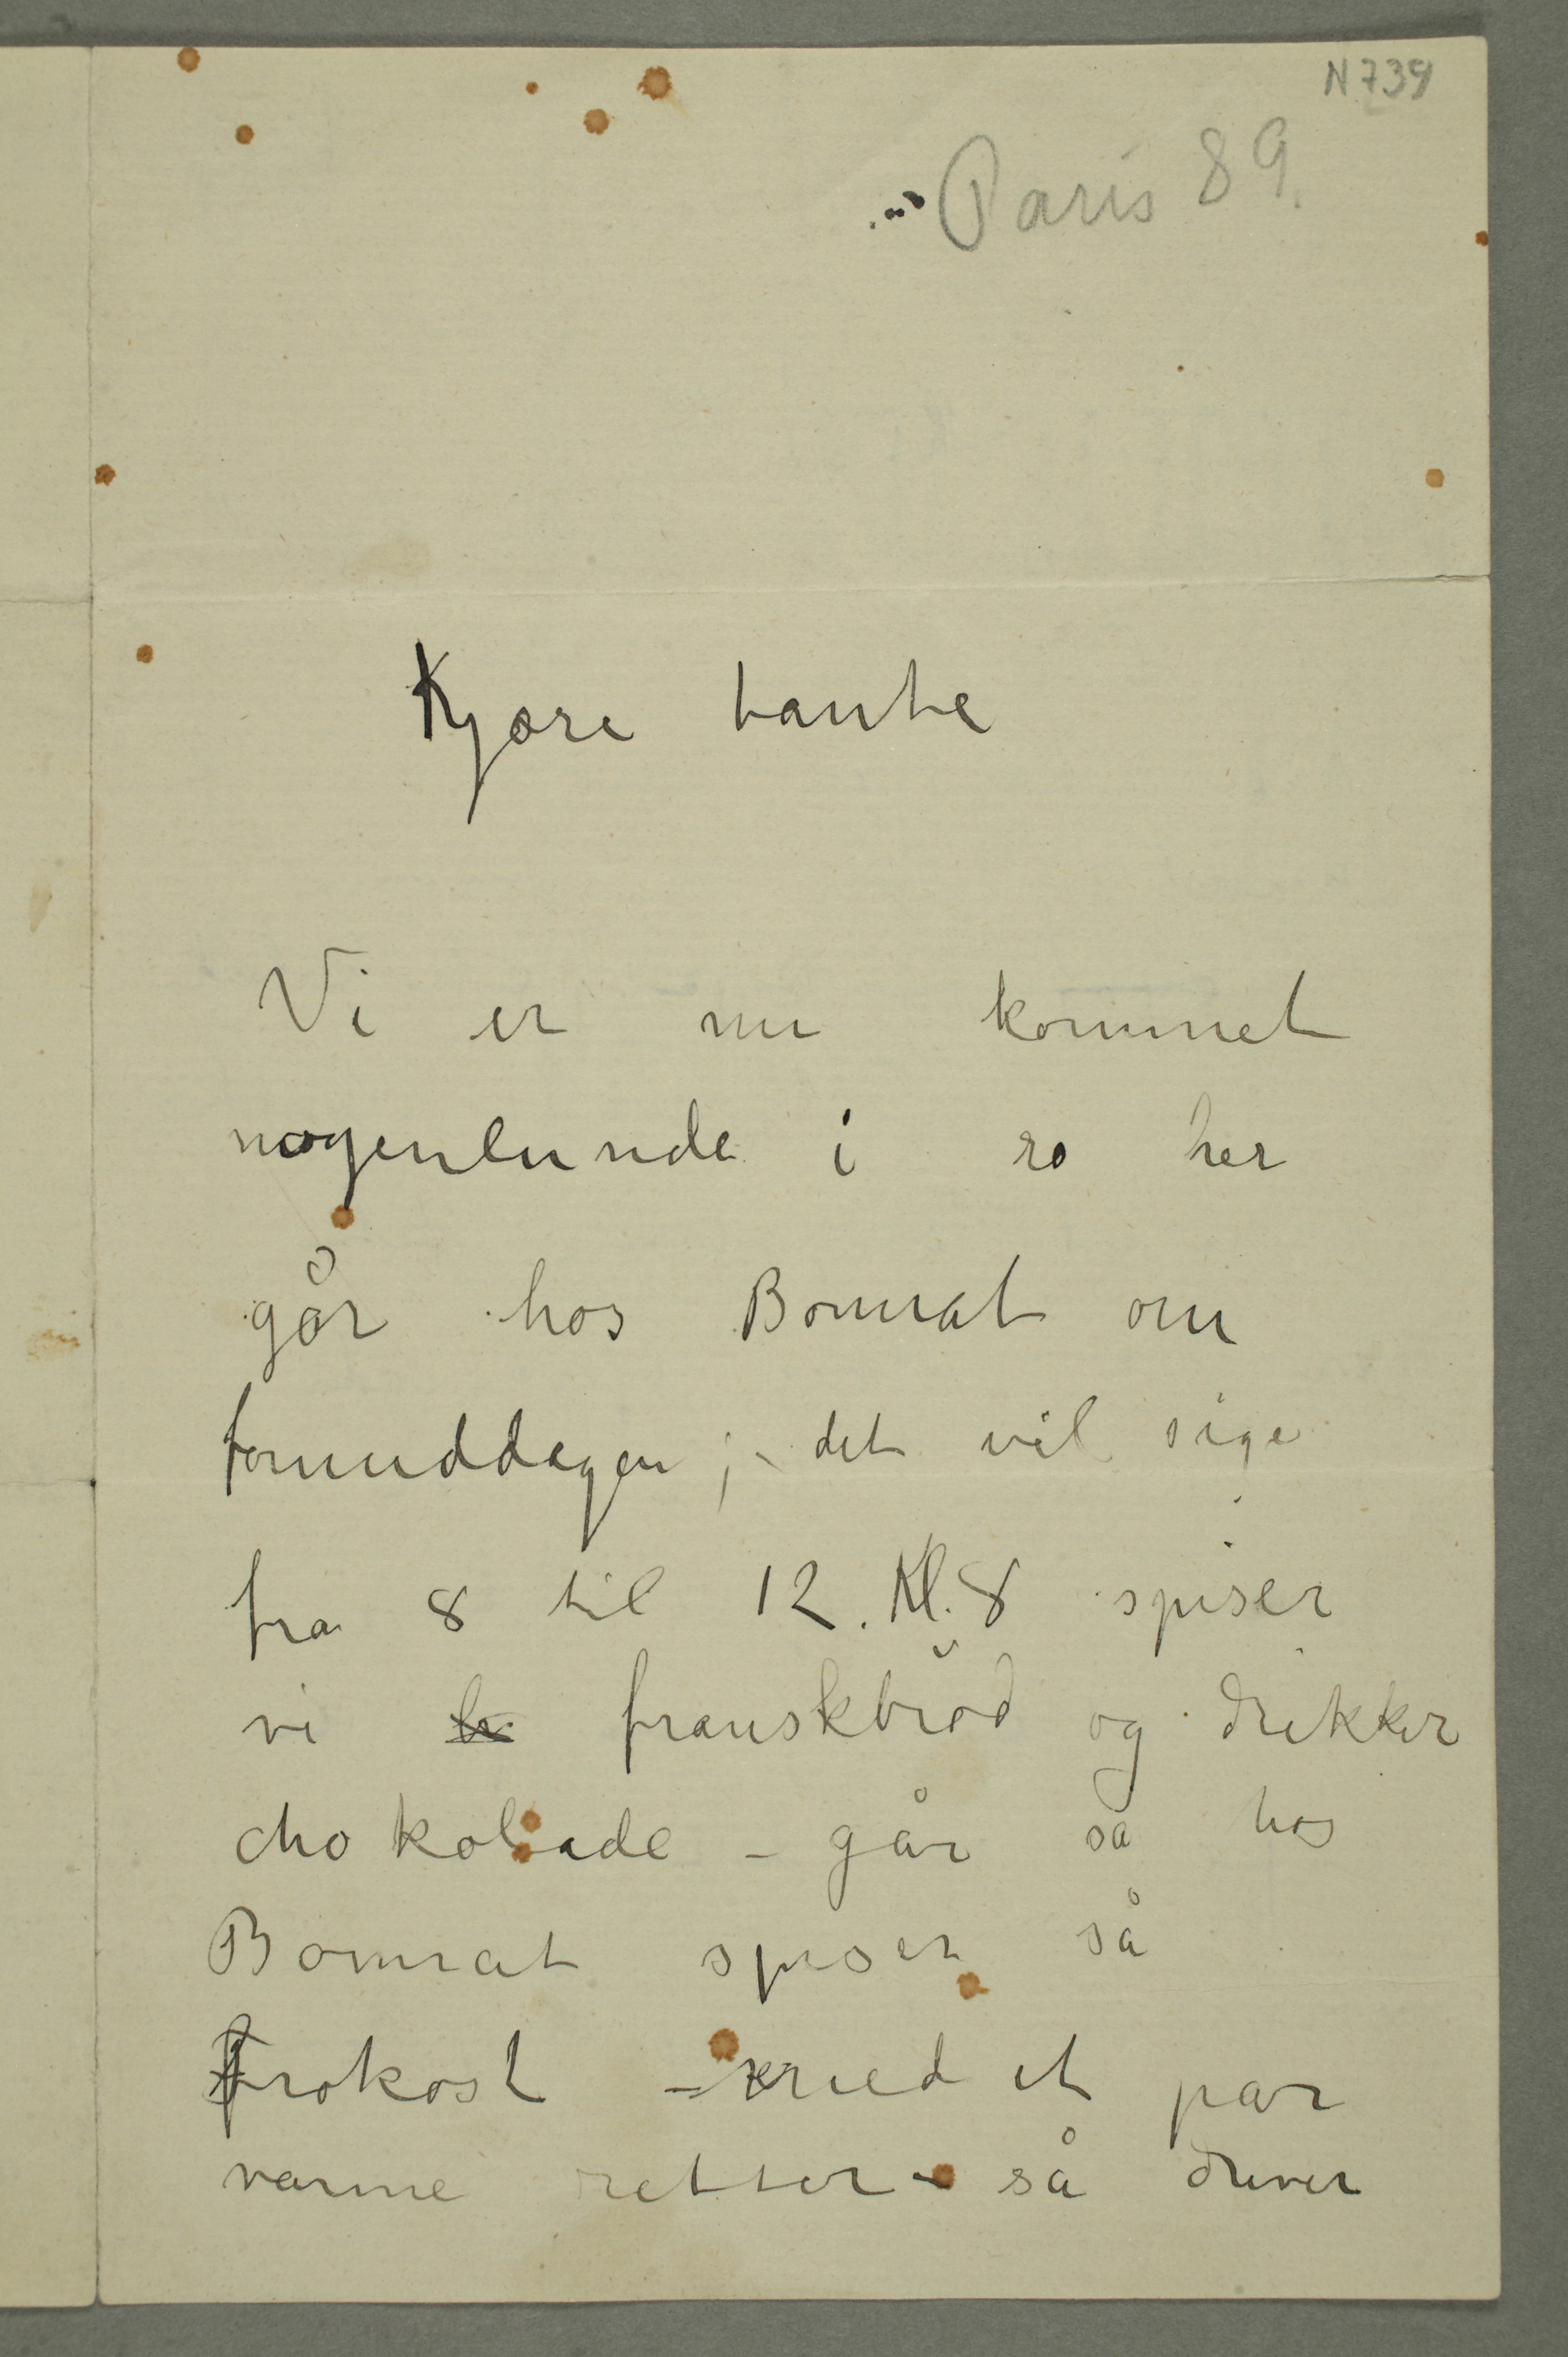 N 739
Paris 89.
Kjære tante
Vi er nu kommet
nogenlunde i ro her
går hos Bonnat om
formiddagen; – det vil sige
fra 8 til 12. Kl. 8 spiser
vi br franskbrød og drikker
chokolade – går så hos
Bonnat spiser så
frokost – med et par
varme retter – så driver